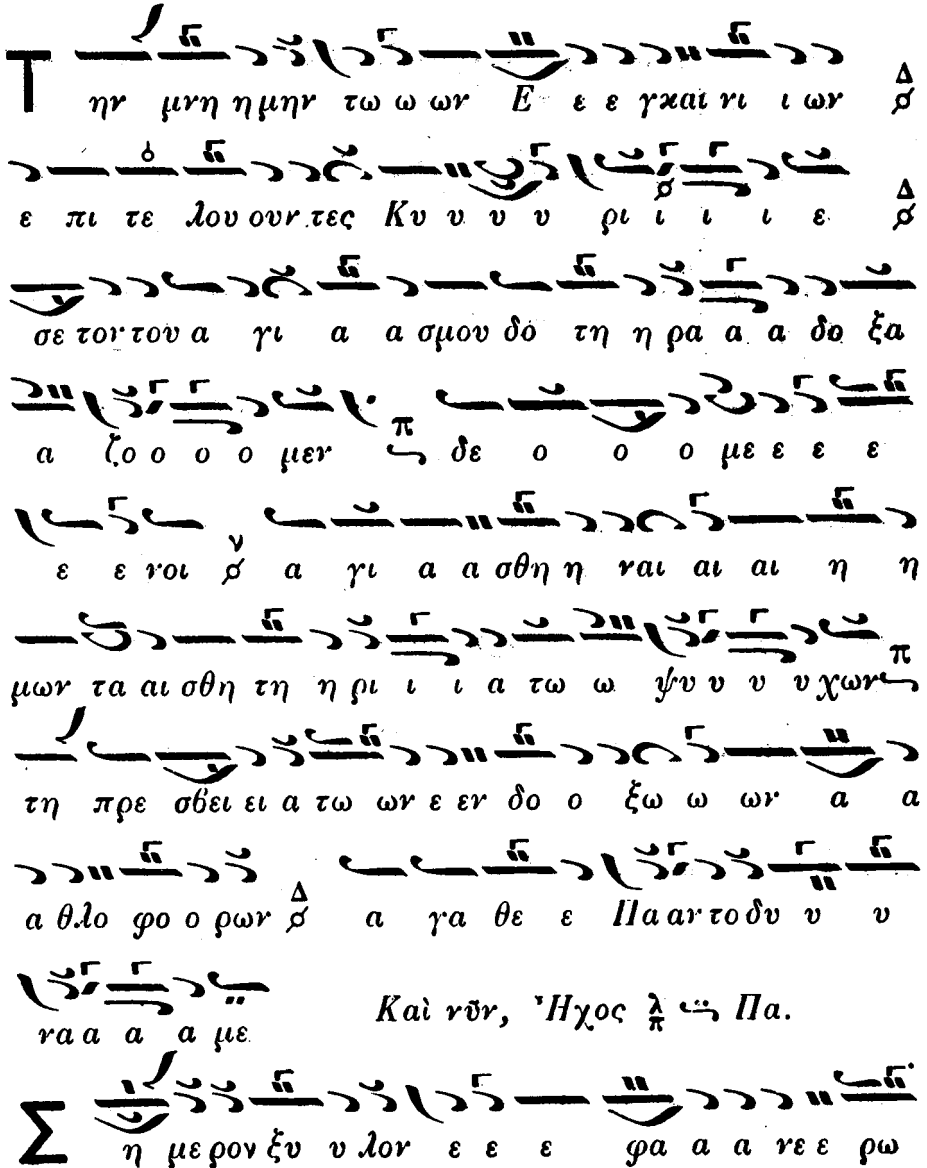 Την μνη η μην τω ω ων Ε ε ε γκαι νι ι ων Δ
ε πι τε λου ουν τες Κυ υ υ υ ρι ι ι ι ε Δ
σε τον του α γι α α σμου δο τη η ρα α α δο ξα
α ζο ο ο ο μεν π δε ο ο ο με ε ε ε
ε ε νοι ν α γι α α σθη η ναι αι αι η η
μων τα αι σθη τη η ρι ι ι α τω ω ψυ υ υ υ χων π
τη πρε σβει ει α τω ων ε εν δο ο ξω ω ων α α
α θλο φο ο ρων Δ α γα θε ε Πα αν το δυ υ υ
να α α α με Καὶ νῦν, Ἦχος λ π Πα.
Ση με ρον ξυ υ λον ε ε ε φα α α νε ε ρω